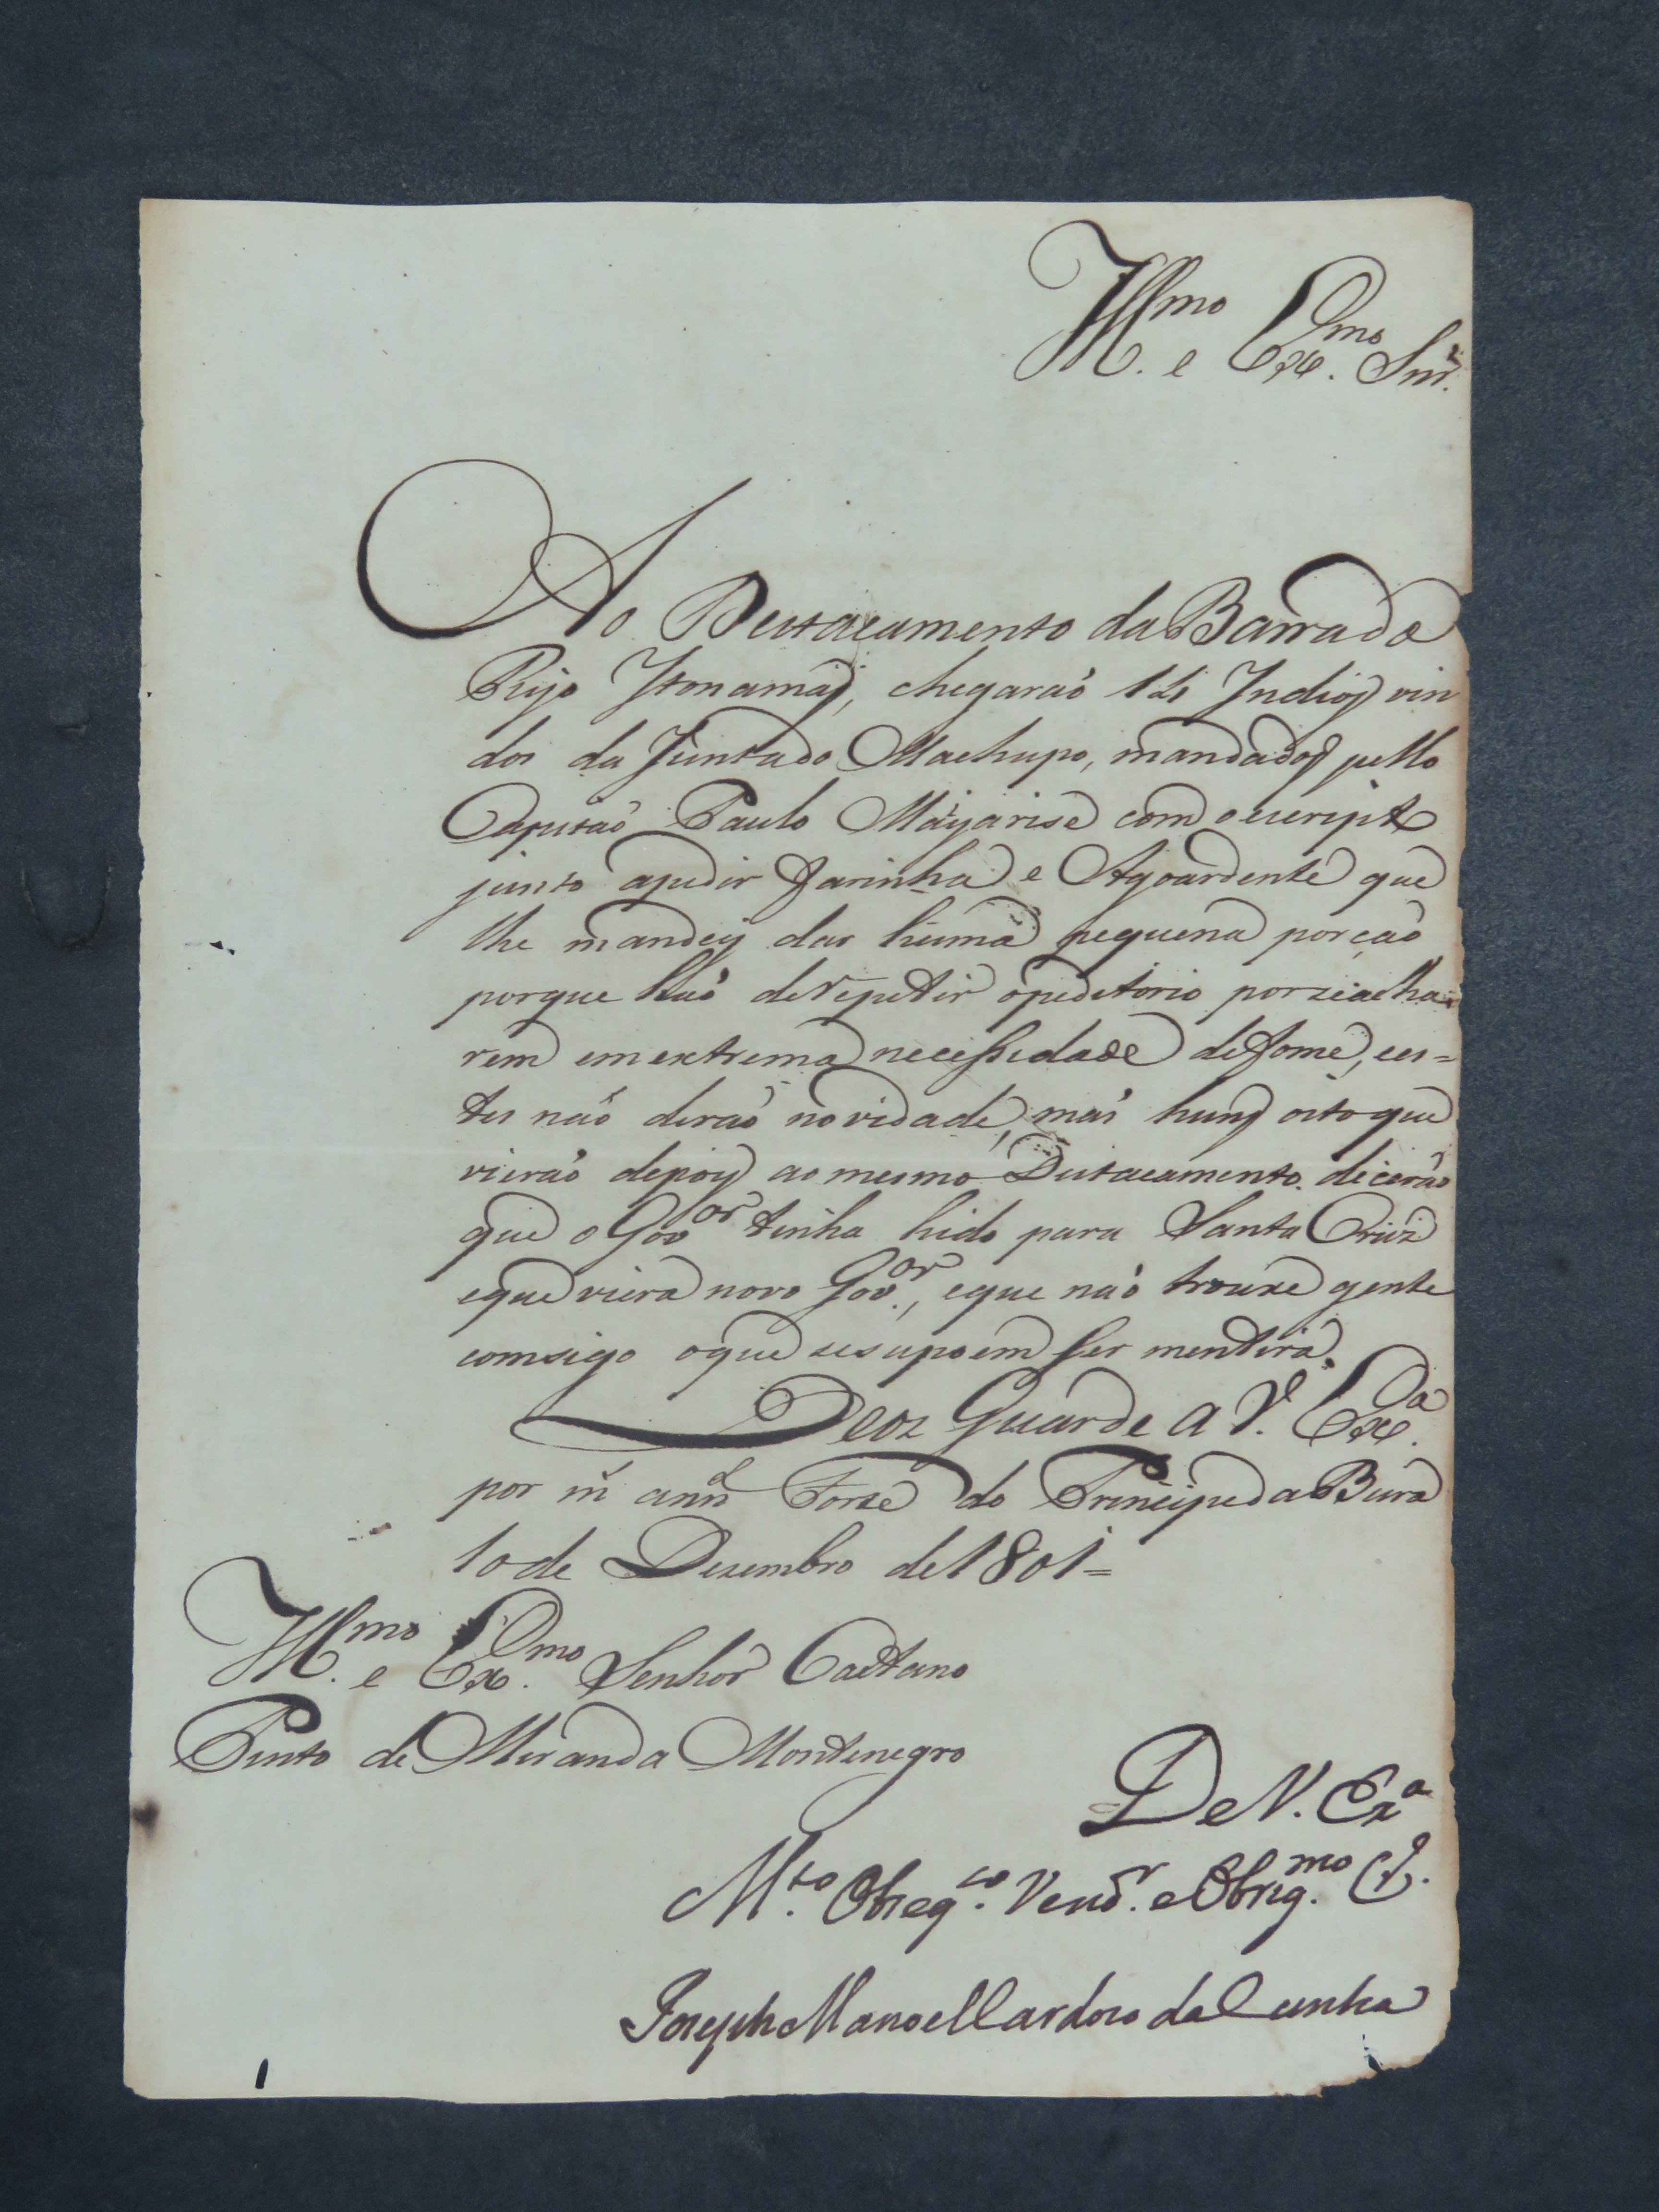 Illmo. e Exmo. Snr.
Ao Destacamento da Barra do
Rijo Itonamas, chegaraõ 14 Indios vin
dos da Junta do Machupo, mandados pello
Capitaõ Paulo Mayarise com o escripto
junto apedir Farinha e Agoardente que
lhe mandey dar huma pequena porçaõ
porque haõ derepetir opeditorio por seacha
rem em extrema necessidade defome, ees=
tes naõ deraõ novidade, mas huns oito que
vieraõ depois ao mesmo Destacamento. diceraõ
que o Govor tinha hido para Santa Cruz
eque viera novo Govor., eque naõ trouxe gente
comsigo oque sesupoem ser mentira.
Deos Guarde a V. Exa.
por ms anns Forte do Principe da Beira
10 de Dezembro de 1801=
Illmo. e Exmo. Senhor Caetano
Pinto de Miranda Montenegro
De V. Exa
Mto. Obseqco. Vendr. e Obrigmo. C.
Joseph Manoel Cardoso da Cunha